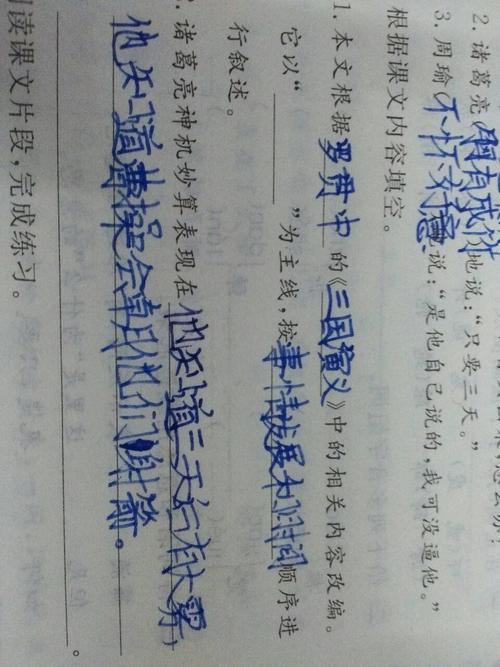 2. 诸葛亮(胸有成竹)地说：“只要三天。”
3. 周瑜(不怀好意)地说：“是他自己说的，我可没逼他。”
根据课文内容填空。
1. 本文根据罗贯中的《三国演义》中的相关内容改编。
它以“”为主线，按事情发展和时间顺序进
行叙述。
. 诸葛亮神机妙算表现在他知道三天后有大雾，
他知道曹操会他们谢箭。
。
读课文片段，完成练习。